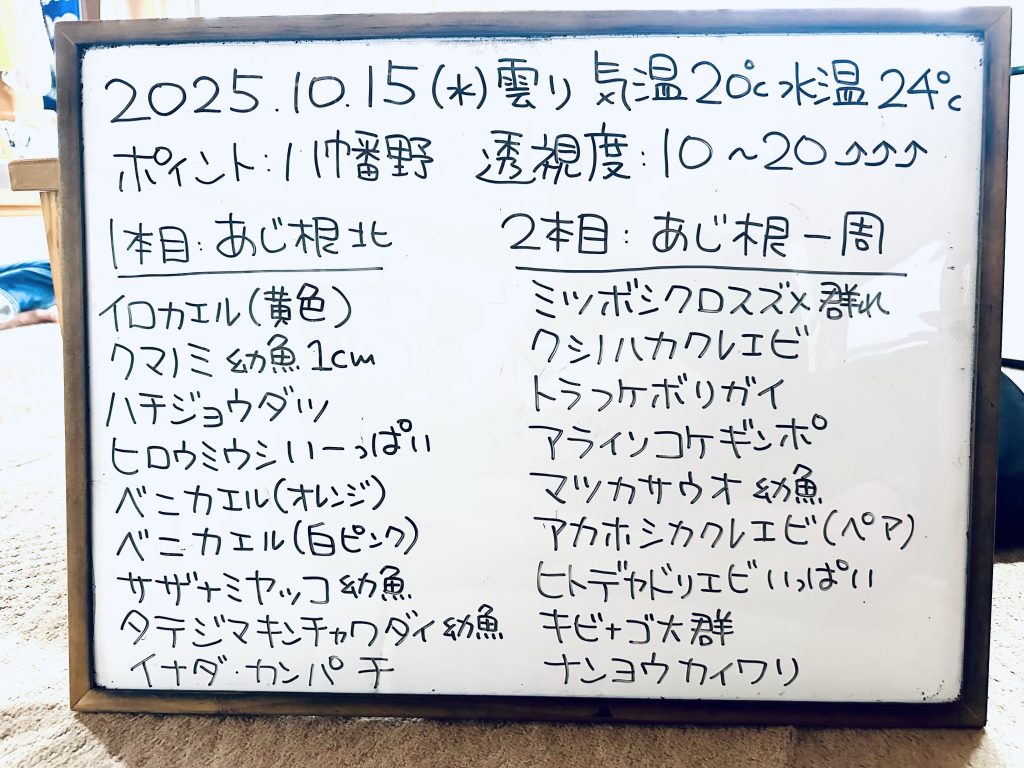 2025.10.15(水)曇り 気温20℃ 水温24℃
ポイント:八幡野 透視度:10～20↑↑↑
1本目:あじ根北
イロカエル(黄色)
クマノミ 幼魚1cm
ハチジョウダツ
ヒロウミウシいーっぱい
ベニカエル(オレンジ)
ベニカエル(白ピンク)
サザナミヤッコ幼魚
タテジマキンチャクダイ幼魚
イナダ・カンパチ
2本目:あじ根一周
ミツボシクロスズメ群れ
クシノハカクレエビ
トラフケボリガイ
アライソコケギンポ
マツカサウオ幼魚
アカホシカクレエビ(ペア)
ヒトデヤドリエビいっぱい
キビナゴ大群
ナンヨウカイワリ